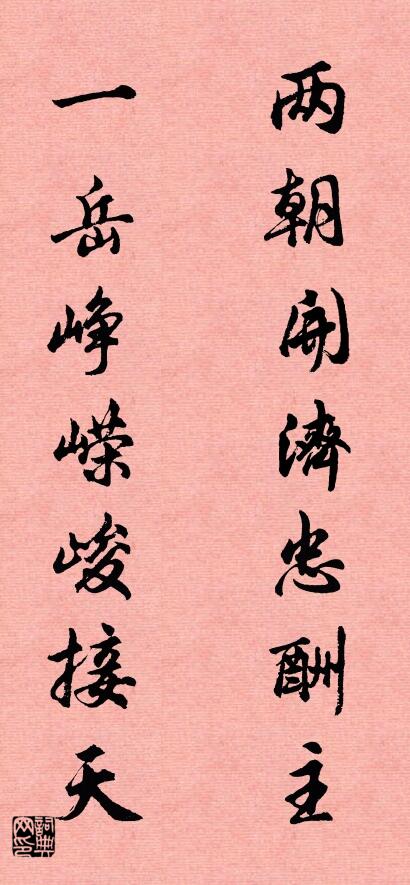 两朝开濟忠酬主
一岳峥嵘峻接天
詞典网印